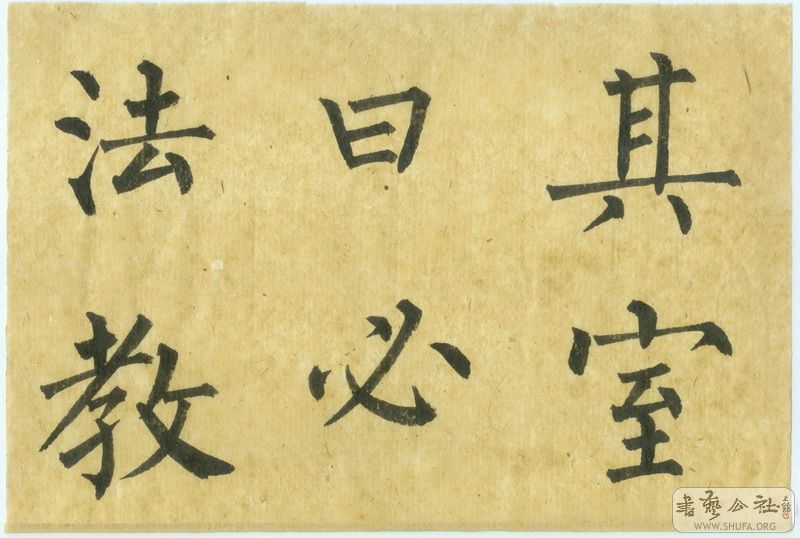 其室
曰必
法教
書藝公社
WWW.SHUFA.ORG